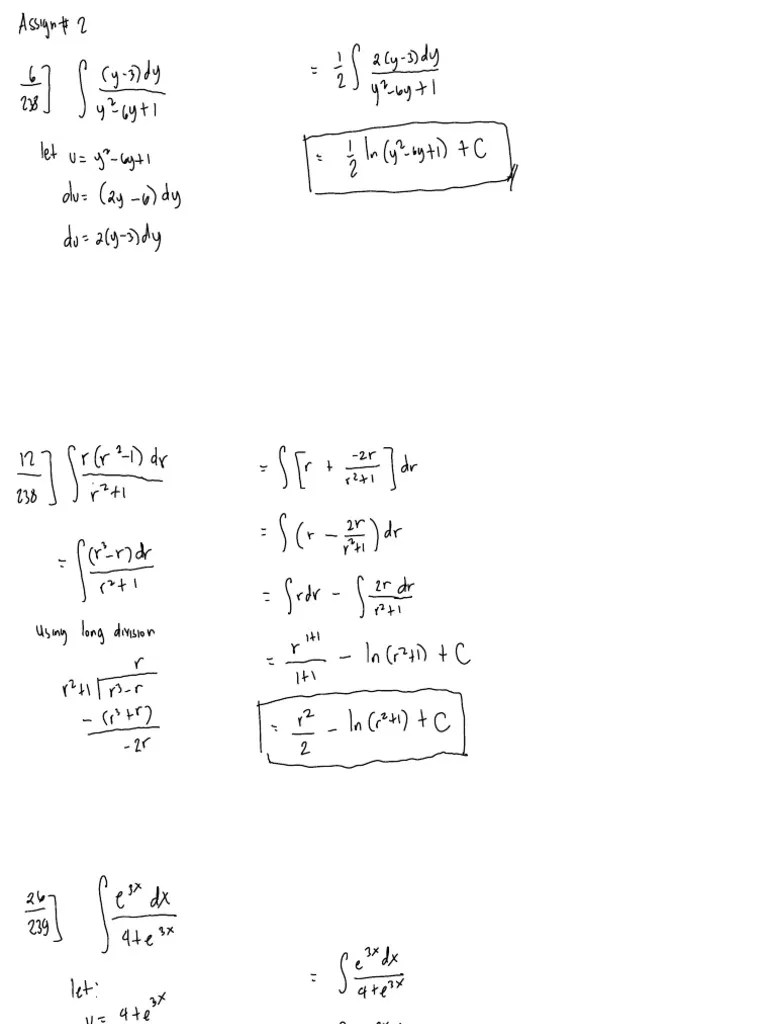 Assign# 2
6/238] ∫ (y-3)dy / y²-6y+1
let u= y²-6y+1
du= (2y-6)dy
du= 2(y-3)dy
= 1/2 ∫ 2(y-3)dy / y²-6y+1
= 1/2 ln(y²-6y+1) + C
12/238] ∫ r(r²-1) dr / r²+1
= ∫ (r³-r)dr / r²+1
Using long division
r
r²+1 | r³-r
- (r³+r)
-2r
= ∫ [r + -2r / r²+1] dr
= ∫ (r - 2r / r²+1) dr
= ∫ rdr - ∫ 2r dr / r²+1
= r¹⁺¹ / 1+1 - ln(r²+1) + C
= r² / 2 - ln(r²+1) + C
26/239] ∫ e³ˣ dx / 4+e³ˣ
let:
u= 4+e³ˣ
= ∫ e³ˣdx / 4+e³ˣ